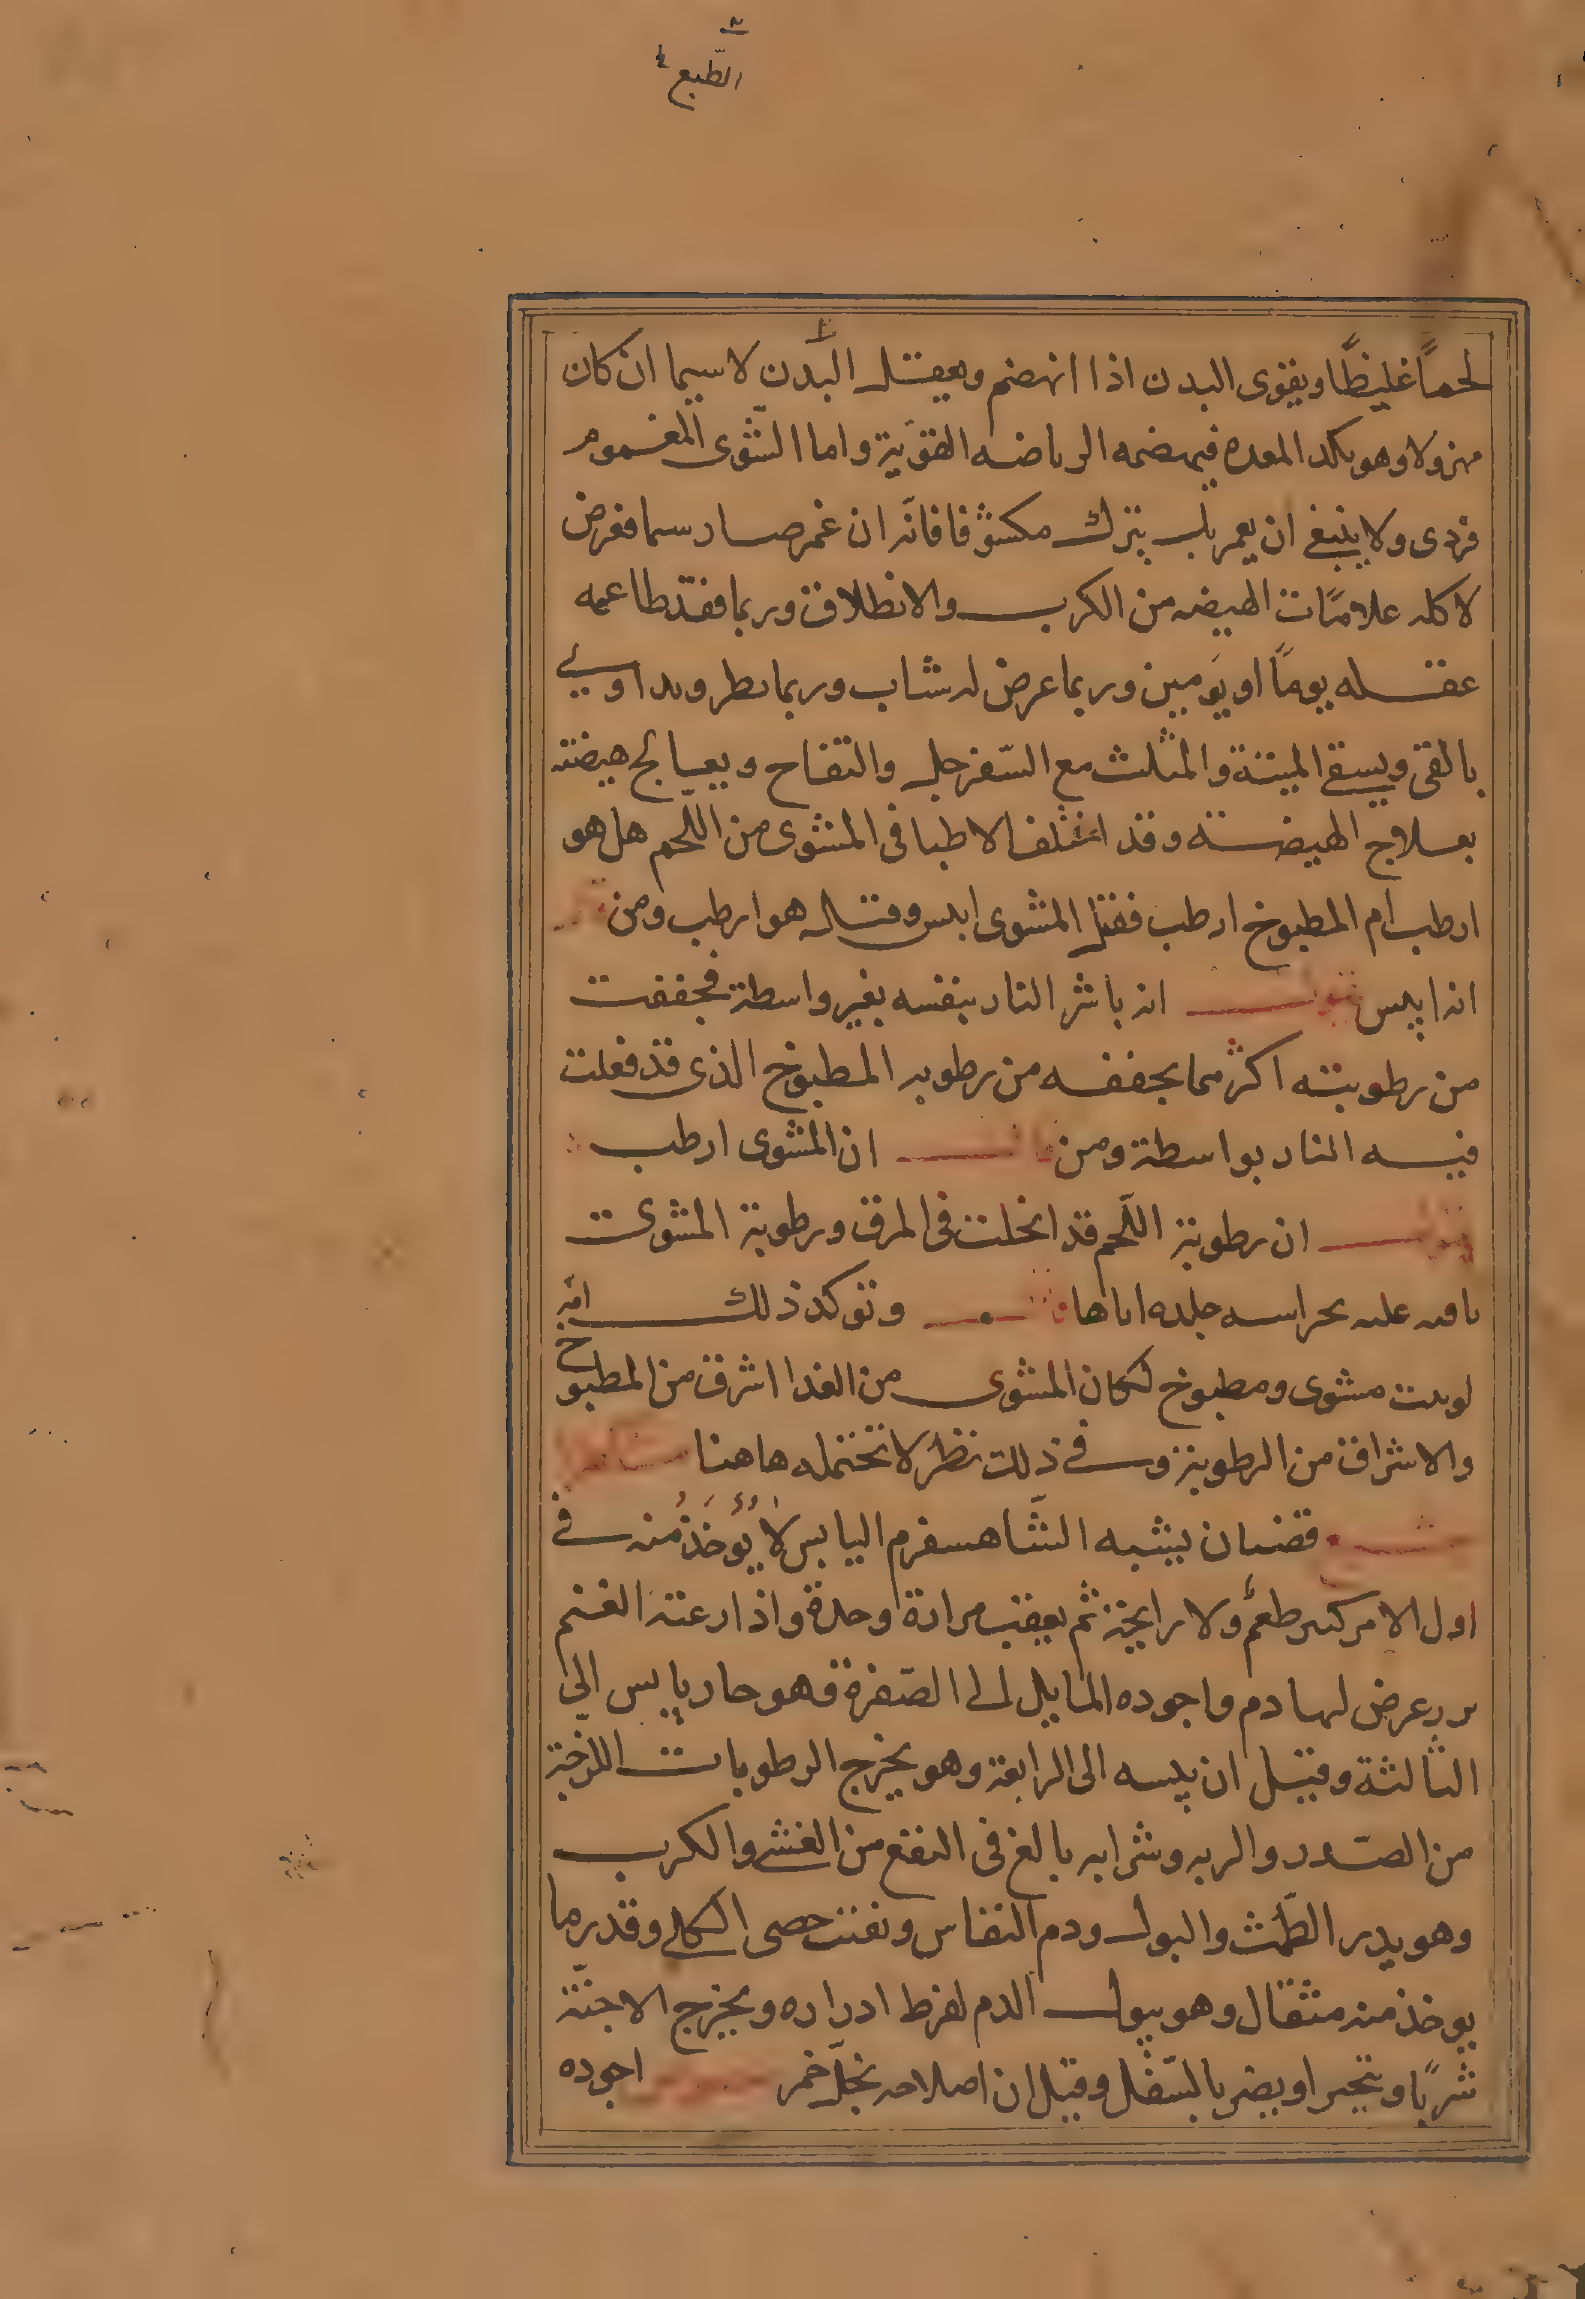 الطبع
لحماً غليظاً ويقوى البدن اذا انهضم ويعقل البدن لا سيما ان كان
مهزولا وهو يكد المعده فيهضمه الرياضه القويّة واما الشّوى المغموم
فردى ولا ينبغى ان يغمر بل يترك مكشوفا فانّه ان غمر صار سما فعرض
لاكله علامات الهيضه من الكرب والانطلاق وربما فقد طاعمه
عقله يوماً او يومين وربما عرض له شاب وربما بطر ويداوى
بالقى ويسقى الميبة والمثلث مع السّفرجل والتفاح ويعالج هيضته
بعلاج الهيضة وقد اختلف الاطبا فى المشوى من اللّحم هل هو
ارطب ام المطبوخ ارطب فقيل المشوى ايبس وقال هو ارطب ومن
انه ايبس يقول انه باشر النار بنفسه بغير واسطة فجففت
من رطوبته اكثر مما يجففه من رطوبه المطبوخ الذى قد فعلت
فيه النار بواسطة ومن قال ان المشوى ارطب
يقول ان رطوبة اللّحم قد انحلت فى المرق ورطوبة المشوى
باقيه عليه بحراسه جلده اياها وتوكد ذلك انه
لو بيت مشوى ومطبوخ لكان المشوى من الغدا اشرق من المطبوخ
والاشراق من الرطوبة وفى ذلك نظر لا تحتمله هاهنا
قضبان يشبه الشّاهسفرم اليابس لا يُوخَذُ منه فى
اول الامر كبير طعم ولا رايحة ثم يعقب مرارة وحدة واذا رعته الغنم
عرض لها دم واجوده المايل الى الصّفرة وهو حار يابس الى
الثالثة وقيل ان يبسه الى الرابعة وهو يخرج الرطوبات اللزجة
من الصّدر والريه وشرابه بالغ فى النفع من الغشى والكرب
وهو يدر الطّمث والبول ودم النفاس وتفتت حصى الكلى وقدر ما
يوخذ منه مثقال وهو يبول الدم لفرط ادراره ويخرج الاجنّة
شربًا وتبخيرا ويضر بالسّفل وقيل ان اصلاحه بخلّ خمر اجوده